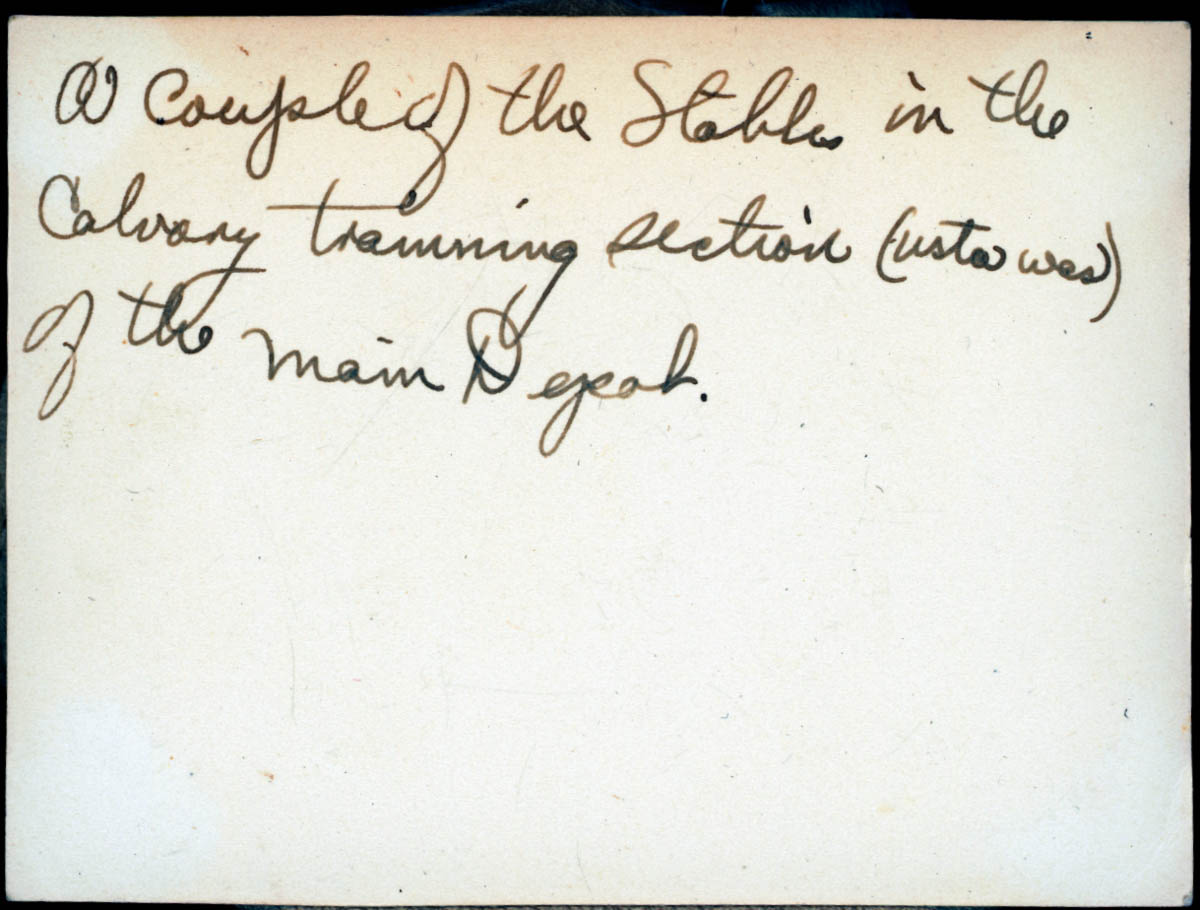 A Couple of the Stables in the
Calvary trainning section (usta was)
of the main Depot.